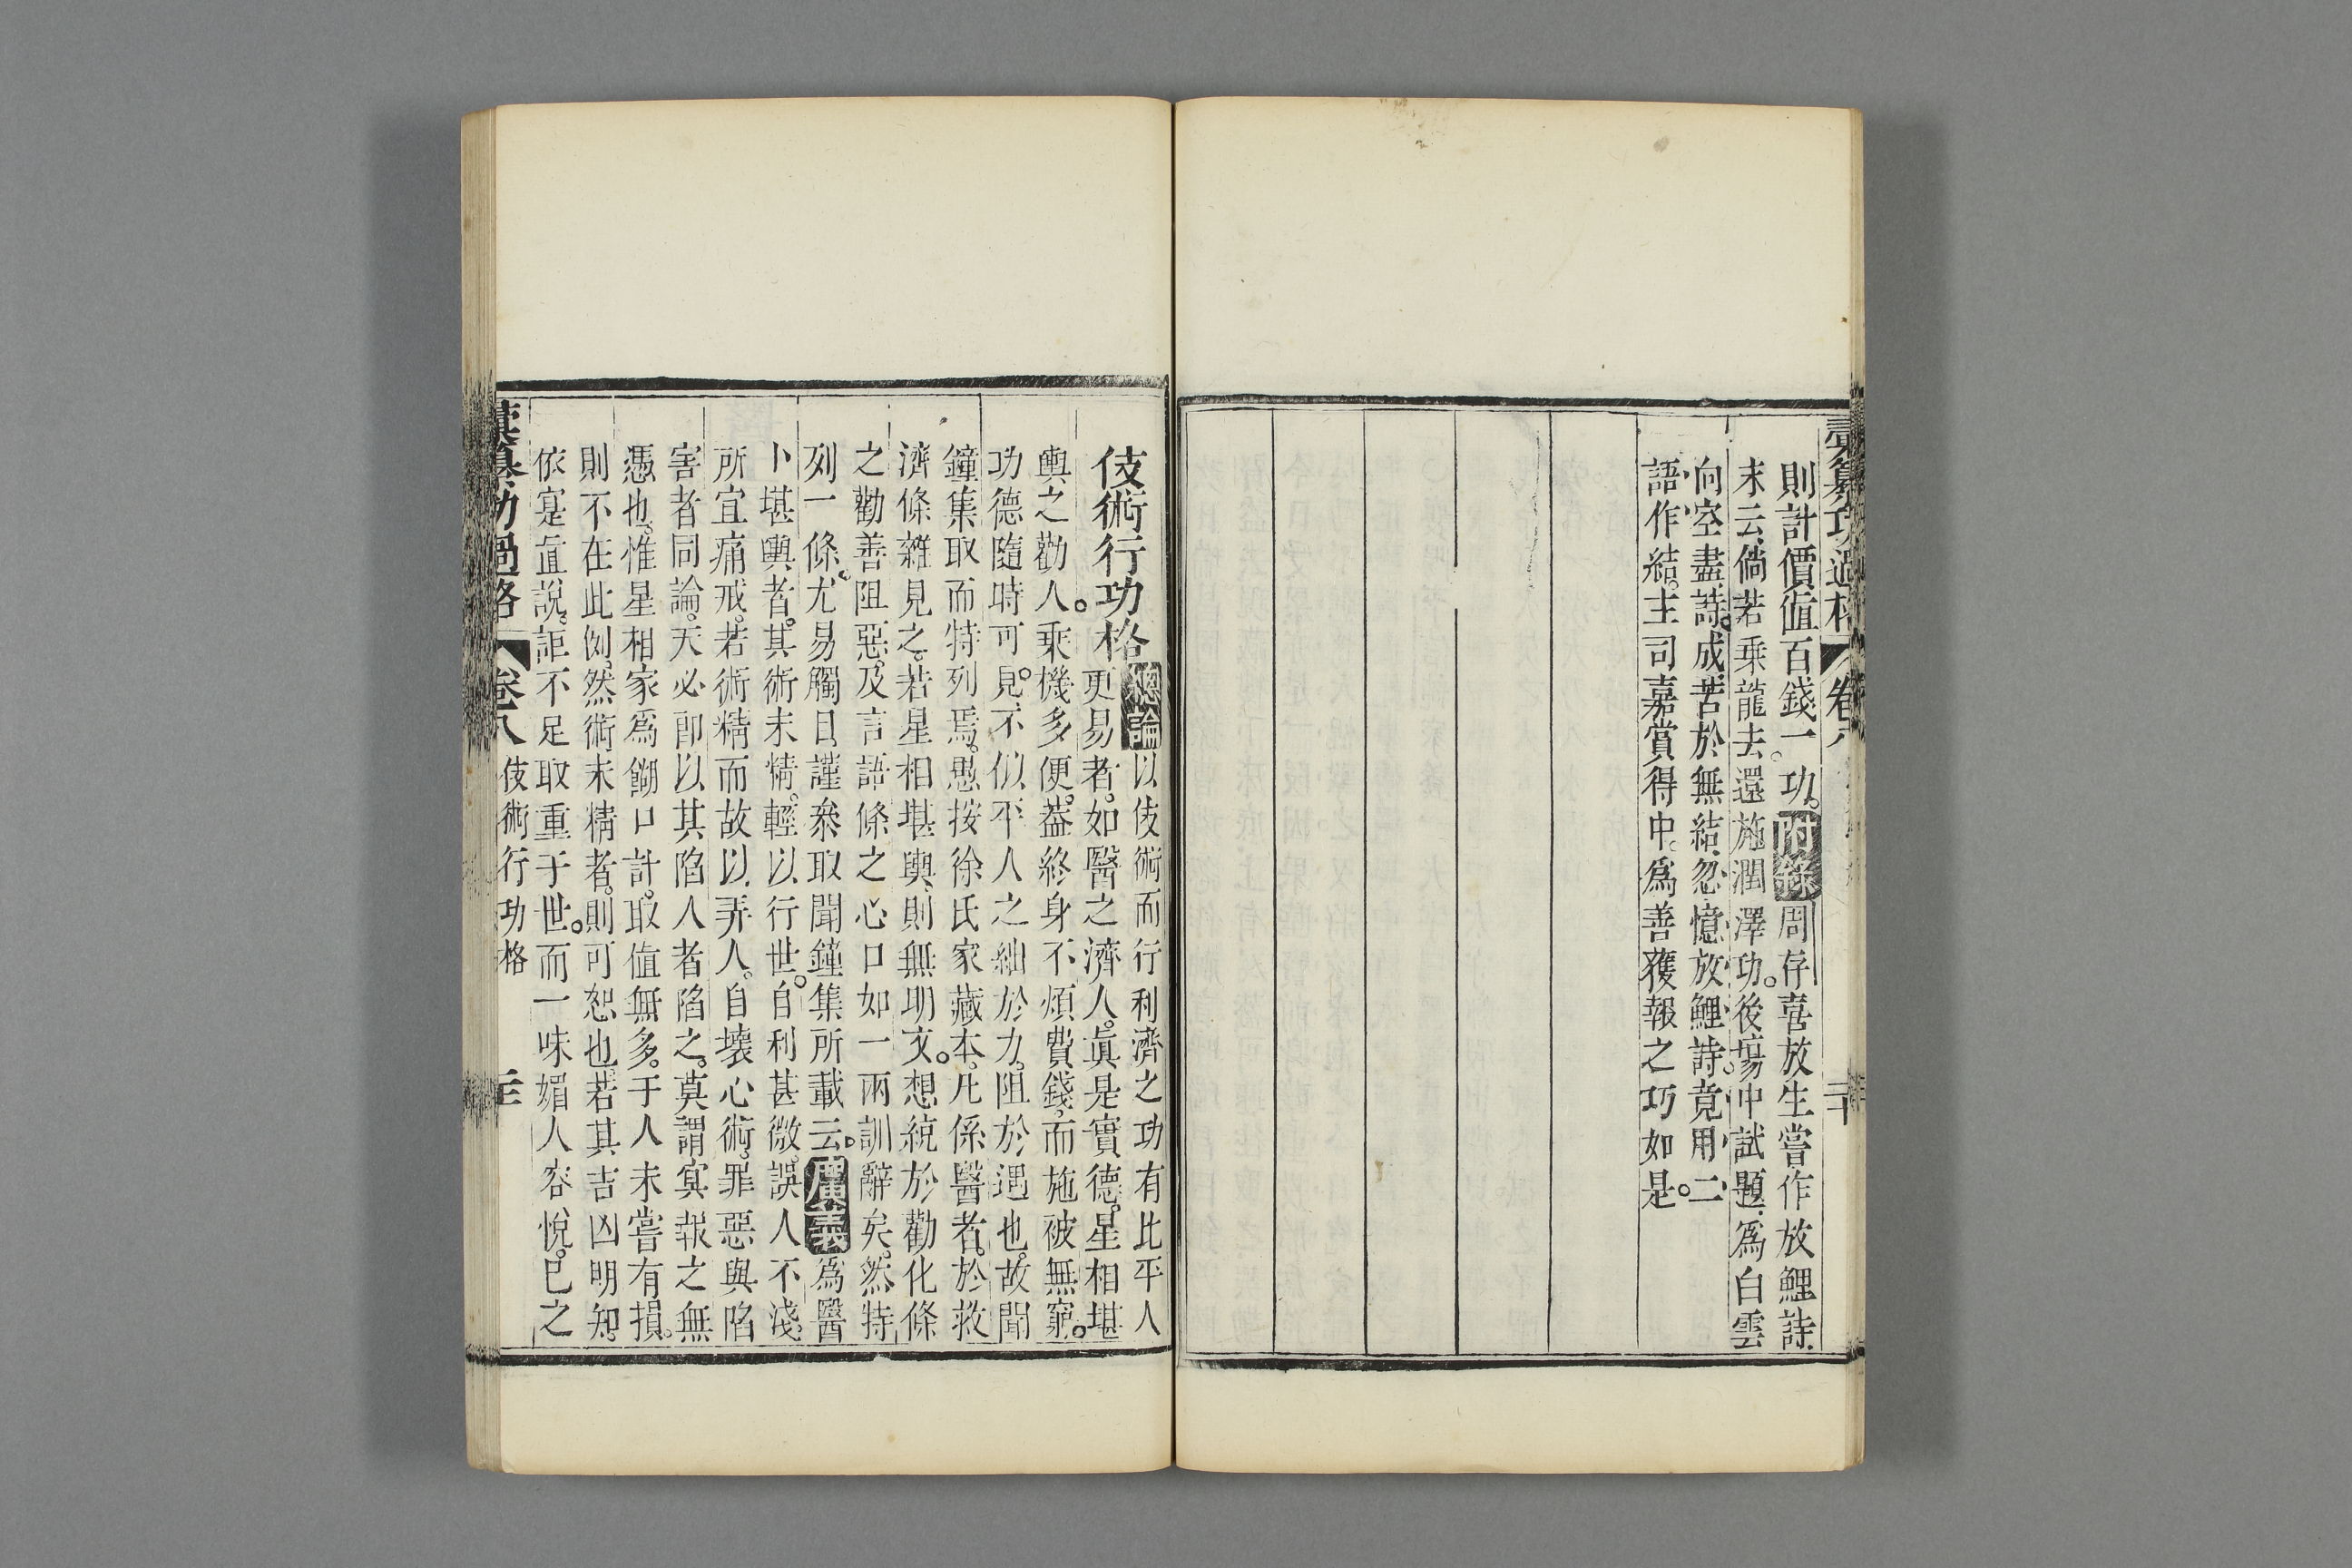 彙纂功過格 卷八 二十
則計價值百錢一功。附錄周存喜放生嘗作放鯉詩.
末云.倘若乗龍去.還施潤澤功。後場中試題.爲白雲
向空盡.詩成.苦於無結.忽憶放鯉詩.竟用二
語作結.主司嘉賞得中.爲善獲報之巧如是。
伎術行功格
總論以伎術而行利濟之功有比平人
更易者。如醫之濟人.眞是實德.星相堪
輿之勸人。乘機多便.葢終身不煩費錢.而施被無窮。
功德隨時可見.不似平人之絀於力.阻於遇也.故聞
鐘集取而特列焉.愚按徐氏家藏本.凡係醫者.於救
濟條雜見之.若星相堪輿.則無明文。想統於勸化條
之勸善阻惡.及言語條之心口如一兩訓辭矣.然特
列一條。尤易觸目.謹叅取聞鐘集所載云.廣義爲醫
卜堪輿者.其術未精.輕以行世。自利甚微.誤人不淺.
所宜痛戒.若術精而故以弄人.自壞心術.罪惡與陷
害者同論.天必卽以其陷人者陷之.莫謂冥報之無
憑也.惟星相家爲餬口計.取值無多.于人未嘗有損.
則不在此例.然術未精者.則可恕也.若其吉凶明知.
依寔直說.詎不足取重于世。而一味媚人容悅.已之
彙纂功過格 卷八 伎術行功格 二十一